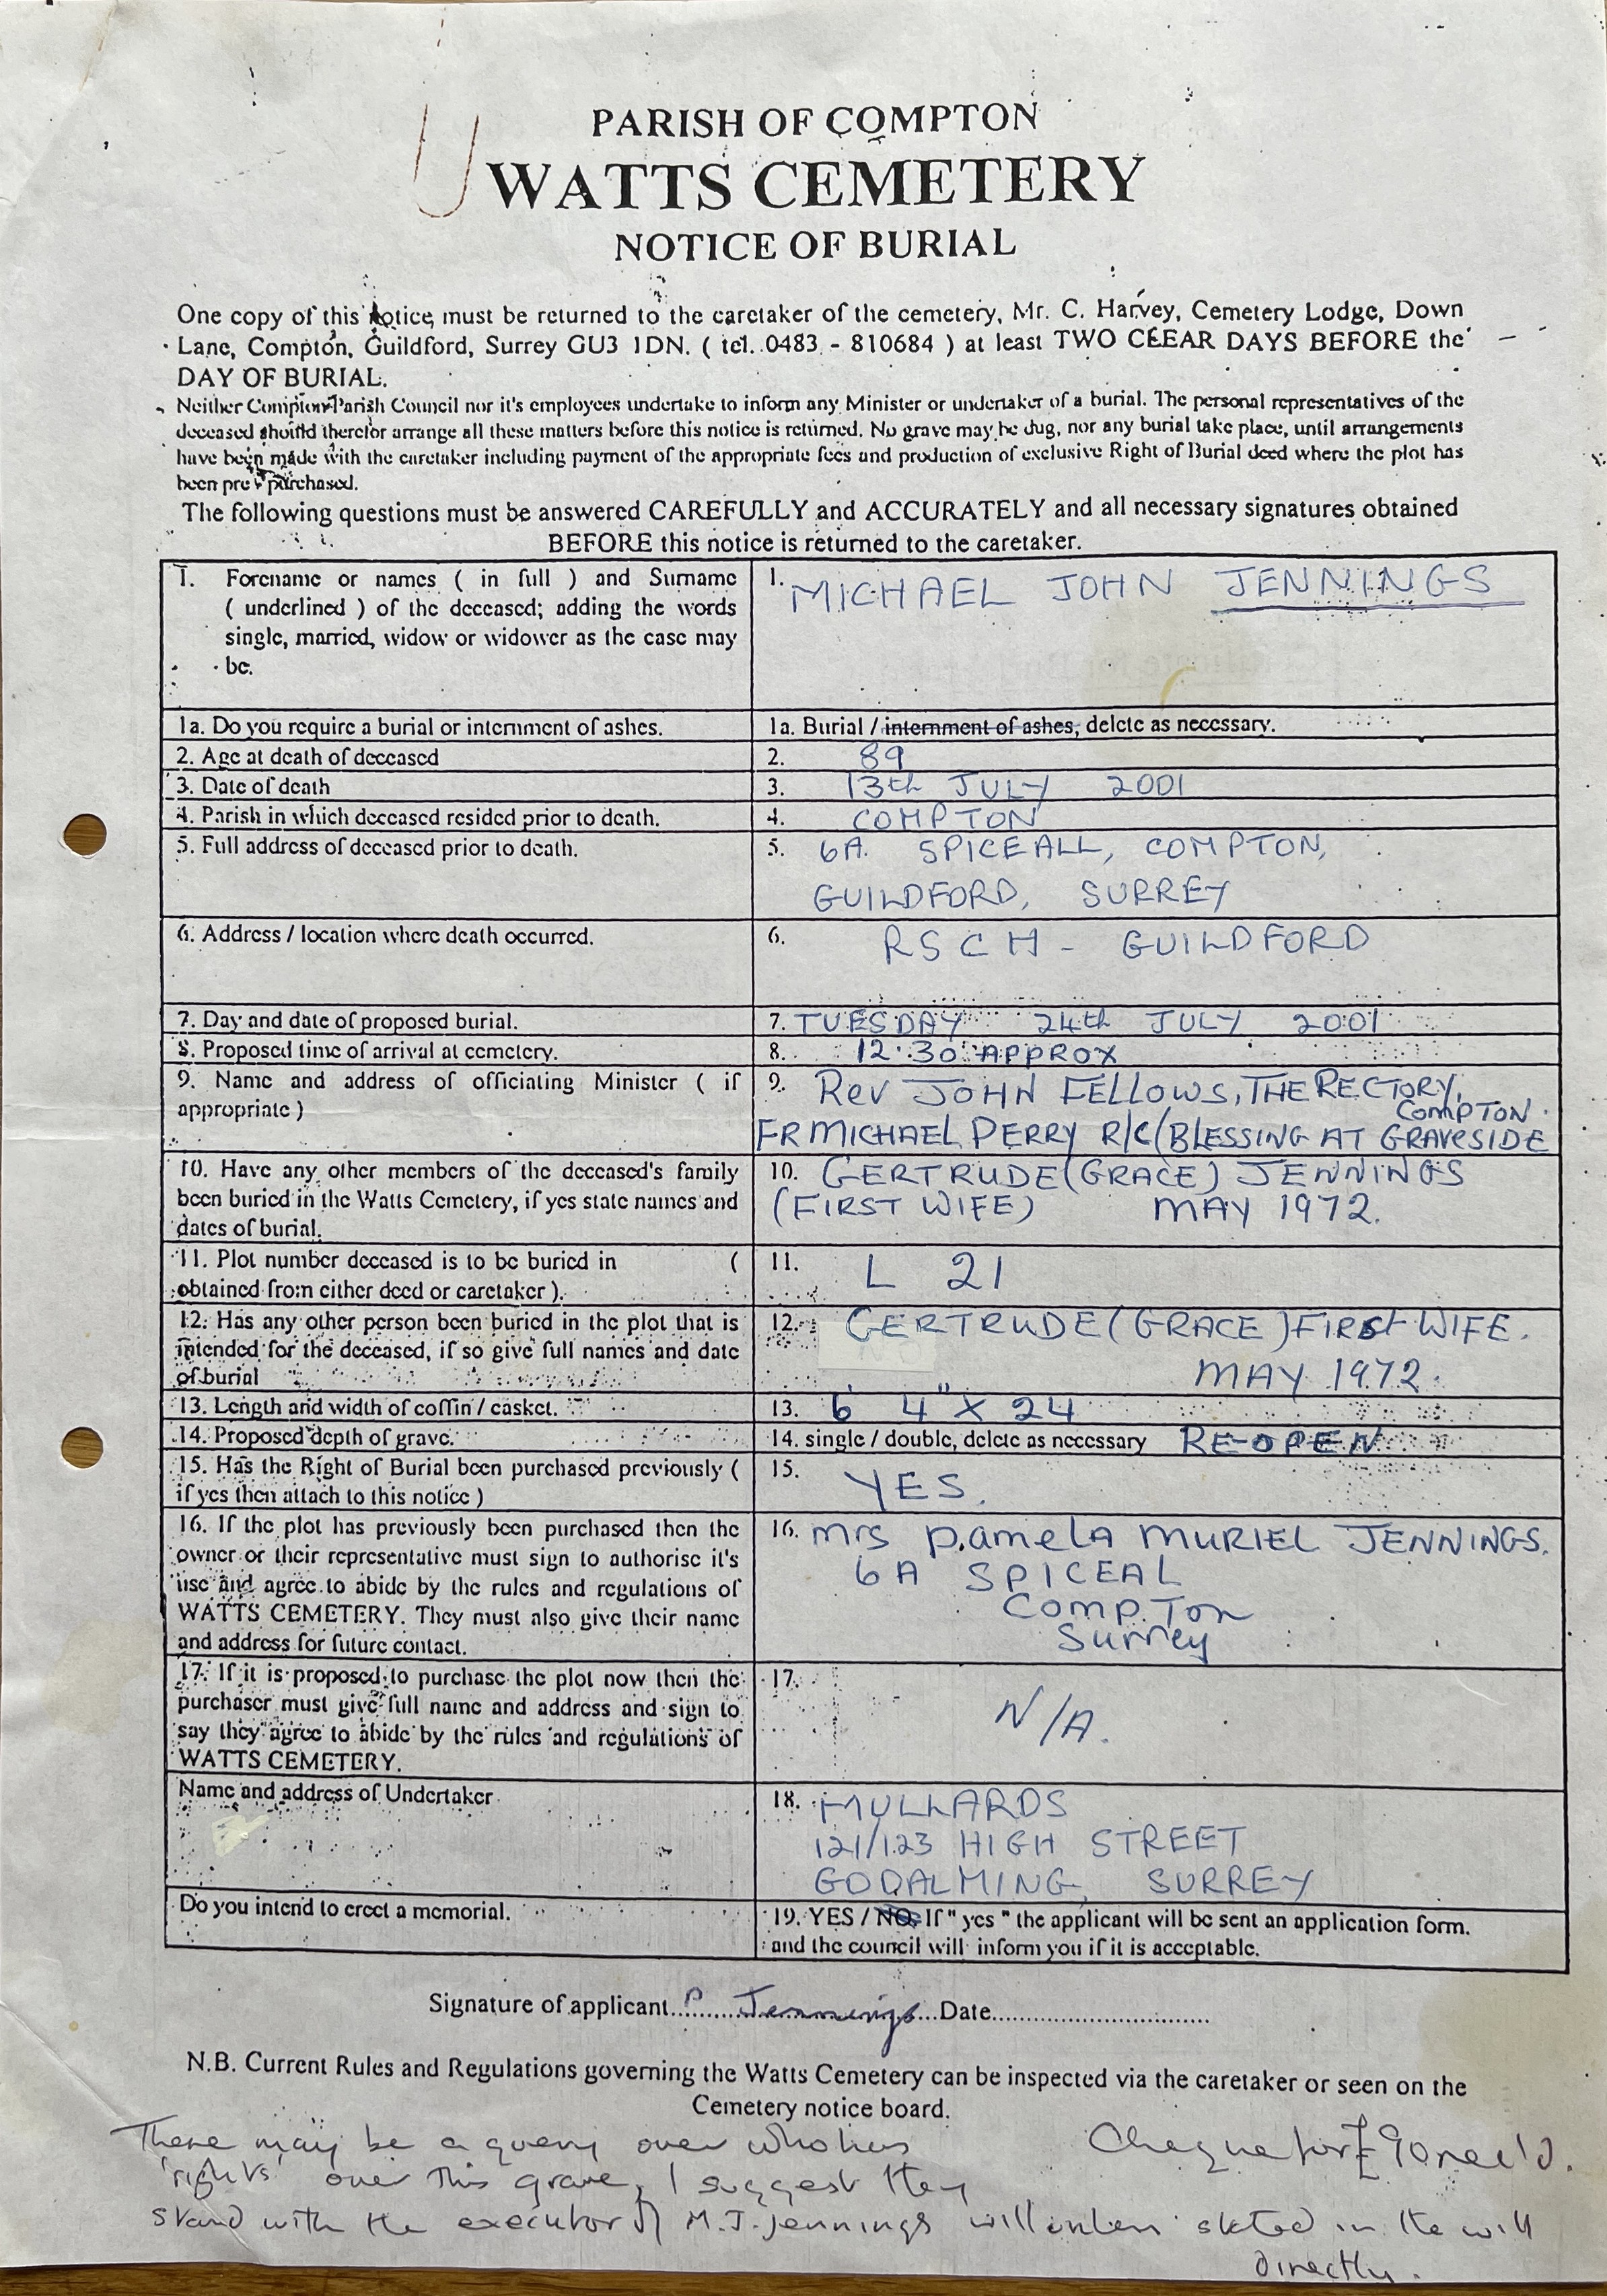 PARISH OF COMPTON
WATTS CEMETERY
NOTICE OF BURIAL
One copy of this notice must be returned to the caretaker of the cemetery, Mr. C. Harvey, Cemetery Lodge, Down
Lane, Compton, Guildford, Surrey GU3 1DN. ( tel. 0483 - 810684 ) at least TWO CLEAR DAYS BEFORE the
DAY OF BURIAL.
Neither Compton Parish Council nor it's employees undertake to inform any Minister or undertaker of a burial. The personal representatives of the
deceased should therefor arrange all these matters before this notice is returned. No grave may be dug, nor any burial take place, until arrangements
have been made with the caretaker including payment of the appropriate fees and production of exclusive Right of Burial deed where the plot has
been pre purchased.
The following questions must be answered CAREFULLY and ACCURATELY and all necessary signatures obtained
BEFORE this notice is returned to the caretaker.
1. Forename or names ( in full ) and Surname
( underlined ) of the deceased; adding the words
single, married, widow or widower as the case may
be.
1. MICHAEL JOHN JENNINGS
1a. Do you require a burial or internment of ashes.
1a. Burial / internment of ashes, delete as necessary.
2. Age at death of deceased
2. 89
3. Date of death
3. 13th JULY 2001
4. Parish in which deceased resided prior to death.
4. COMPTON
5. Full address of deceased prior to death.
5. 6A SPICEALL, COMPTON,
GUILDFORD, SURREY
6. Address / location where death occurred.
6. RSCH - GUILDFORD
7. Day and date of proposed burial.
7. TUESDAY 24th JULY 2001
8. Proposed time of arrival at cemetery.
8. 12.30 APPROX
9. Name and address of officiating Minister ( if
appropriate )
9. Rev JOHN FELLOWS, THE RECTORY,
COMPTON
FR MICHAEL PERRY R/C (BLESSING AT GRAVESIDE
10. Have any other members of the deceased's family
been buried in the Watts Cemetery, if yes state names and
dates of burial.
10. GERTRUDE (GRACE) JENNINGS
(FIRST WIFE) MAY 1972.
11. Plot number deceased is to be buried in (
obtained from either deed or caretaker ).
11. L 21
12. Has any other person been buried in the plot that is
intended for the deceased, if so give full names and date
of burial
12. GERTRUDE (GRACE) FIRST WIFE.
MAY 1972.
13. Length and width of coffin / casket.
13. 6' 4" X 24
14. Proposed depth of grave.
14. single / double, delete as necessary RE-OPEN
15. Has the Right of Burial been purchased previously (
if yes then attach to this notice )
15. YES.
16. If the plot has previously been purchased then the
owner or their representative must sign to authorise it's
use and agree to abide by the rules and regulations of
WATTS CEMETERY. They must also give their name
and address for future contact.
16. Mrs Pamela MURIEL JENNINGS.
6A SPICEAL
Compton
Surrey
17. If it is proposed to purchase the plot now then the
purchaser must give full name and address and sign to
say they agree to abide by the rules and regulations of
WATTS CEMETERY.
17.
N/A.
Name and address of Undertaker
18. MULLARDS
121/123 HIGH STREET
GODALMING, SURREY
Do you intend to erect a memorial.
19. YES / NO. If " yes " the applicant will be sent an application form.
and the council will inform you if it is acceptable.
Signature of applicant.. P Jennings ...Date..............................
N.B. Current Rules and Regulations governing the Watts Cemetery can be inspected via the caretaker or seen on the
Cemetery notice board.
There may be a query over who has
'rights' over this grave, I suggest they
Cheque for £90 rec'd.
stand with the executor of M.J. Jennings will unless stated in the will
directly.